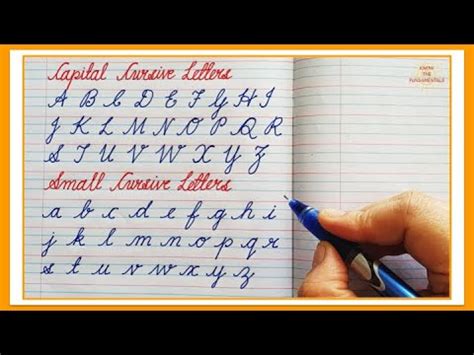 Capital Cursive Letters
A B C D E F G H I
J K L M N O P Q R
S T U V W X Y Z
Small Cursive Letters
a b c d e f g h i
j k l m n o p q r
s t u v w x y z
KNOW
THE
FUNDAMENTALS